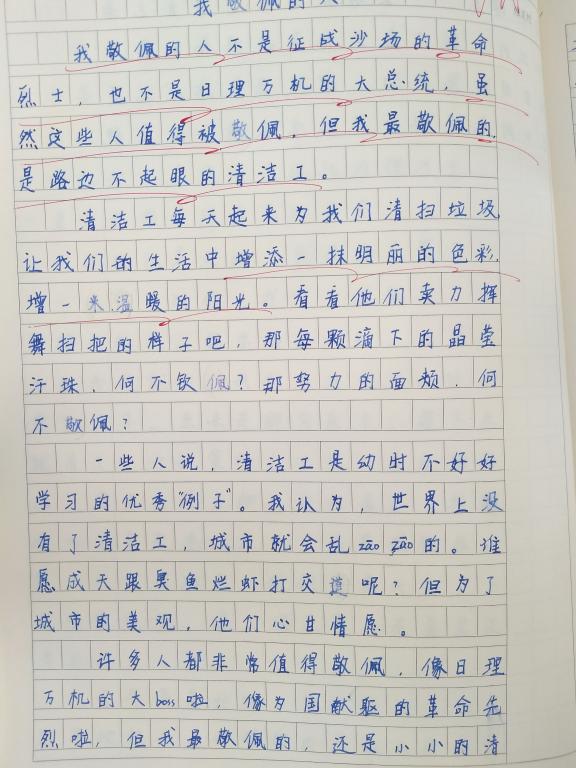 我敬佩的人
我敬佩的人不是征成沙场的革命
烈士，也不是日理万机的大总统，虽
然这些人值得被敬佩，但我最敬佩的，
是路边不起眼的清洁工。
清洁工每天起来为我们清扫垃圾，
让我们的生活中增添一抹明丽的色彩，
增一米温暖的阳光。看看他们卖力挥
舞扫把的样子吧，那每颗滴下的晶莹
汗珠，何不钦佩？那努力的面颊，何
不敬佩？
一些人说，清洁工是幼时不好好
学习的优秀“例子”。我认为，世界上没
有了清洁工，城市就会乱zāo zāo的。谁
愿成天跟臭鱼烂虾打交道呢？但为了
城市的美观，他们心甘情愿。
许多人都非常值得敬佩，像日理
万机的大boss啦，像为国献躯的革命先
烈啦，但我最敬佩的，还是小小的清